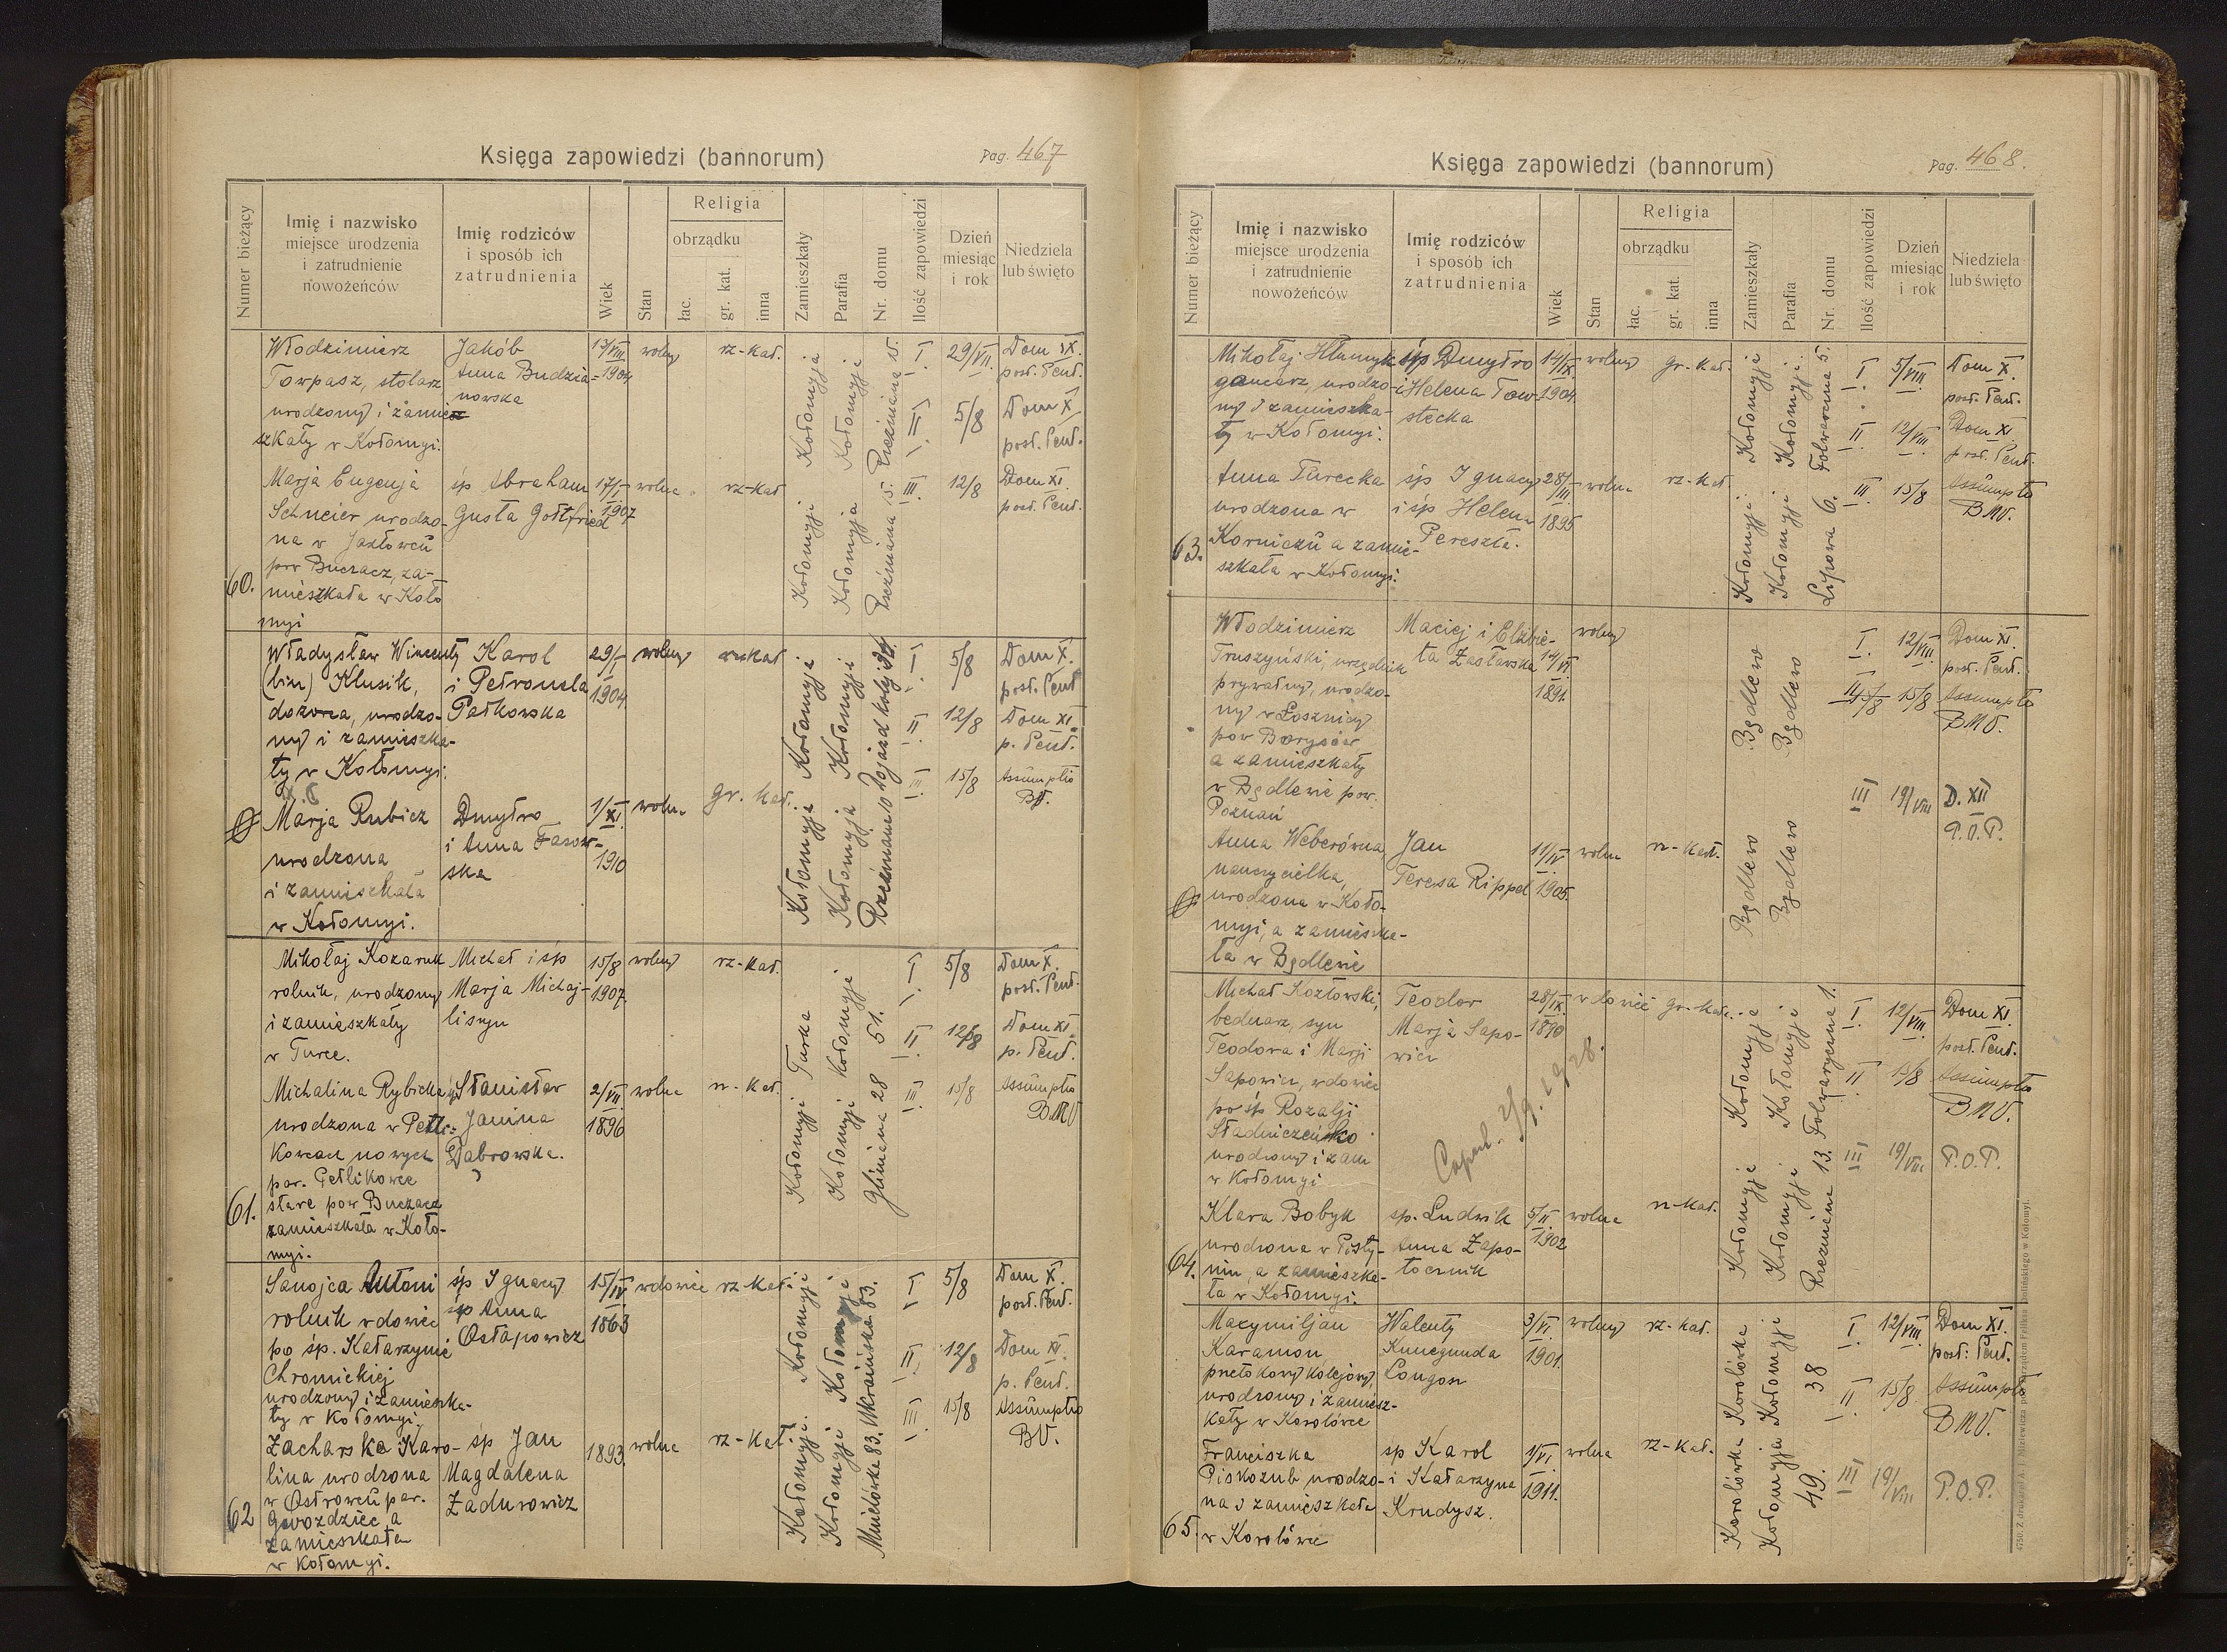 Księga zapowiedzi (bannorum)
Pag. 467
Numer bieżący
Imię i nazwisko
miejsce urodzenia
i zatrudnienie
nowożeńców
Imię rodziców
i sposób ich
zatrudnienia
Wiek
Stan
Religia
obrządku
łac.
gr. kat.
inna
Zamieszkały
Parafia
Nr. domu
Ilość zapowiedzi
Dzień
miesiąc
i rok
Niedziela
lub święto
60.
Włodzimierz
Towpasz, stolarz
urodzony i zamie
szkały w Kołomyi.
Jakób
Anna Budzia=
nowska
13/VIII 1904
wolny
rz-kat.
Kołomyja
Kołomyja
15.
I. 29/VII. Dom IX. post. Pent.
II 5/8 Dom X post. Pent.
III. 12/8 Dom XI. post. Pent.
Marja Eugenja
Schneier urodzo-
na w Jazłowcu
pow Buczacz, za-
mieszkała w Koło
myi
śp Abraham
Gusta Gottfried
17/I 1907
wolna
rz-kat
Kołomyji
Kołomyja
15.
Władysław Wincenty
(bin) Klusik,
dozorca, urodzo-
ny i zamieszka-
ły w Kołomyi.
Karol
i Petronela
Pałkowska
29/I 1904
wolny
rz-kat
Kołomyja
Kołomyji
I 5/8 Dom X. post. Pent
II 12/8 Dom XI p. Pent.
III 15/8 Assumptio BV.
Marja Rubicz
urodzona
i zamieszkała
w Kołomyi.
Dmytro
i Anna Fasow-
ska
1/XI 1910
wolna
gr. kat.
Kołomyja
Kołomyja
10
61.
Mikołaj Kozaruk
rolnik, urodzony
i zamieszkały
w Turce.
Michał i śp
Marja Michaj-
liszyn
15/8 1907.
wolny
rz-kat.
Turka
Kołomyje
51.
I 5/8 Dom X. post. Pent.
II 12/8 Dom XI. p. Pent.
III 15/8 Assumptio BMV
Michalina Rybicka
urodzona w Petli=
kowcach nowych
par. Petlikowce
stare pow Buczacz
zamieszkała w Koło-
myi.
Stanisław
Janina
Dąbrowska.
2/VII 1896
wolna
rz-kat.
Kołomyji
Kołomyji
Gliniana 28
62
Sanojca Antoni
rolnik wdowiec
po śp. Katarzynie
Chromickiej
urodzony i zamieszka-
ły w Kołomyi.
śp Ignacy
śp Anna
Ostapowicz
15/IV 1863
wdowiec
rz-kat.
Kołomyji
Kołomyje
Ukraińska 83.
I 5/8 Dom X. post. Pent.
II 12/8 Dom XI. p. Pent.
III 15/8 Assumptio BV.
Zacharska Karo-
lina urodzona
w Ostrowcu par.
Gwoździec a
zamieszkała
w Kołomyi.
śp Jan
Magdalena
Zadurowicz
1893.
wolna
rz-kat
Kołomyji.
Kołomyji
83.
Księga zapowiedzi (bannorum)
Pag. 468.
Numer bieżący
Imię i nazwisko
miejsce urodzenia
i zatrudnienie
nowożeńców
Imię rodziców
i sposób ich
zatrudnienia
Wiek
Stan
Religia
obrządku
łac.
gr. kat.
inna
Zamieszkały
Parafia
Nr. domu
Ilość zapowiedzi
Dzień
miesiąc
i rok
Niedziela
lub święto
63.
Mikołaj Hłumyk
garncarz, urodzo-
ny i zamieszka-
ły w Kołomyi.
śp Dmytro
i Helena Tow-
stecka
14/IX 1904.
wolny
gr-kat.
Kołomyje
Kołomyji.
Folwarczna 5.
I 5/VIII Dom X. post. Pent.
II 12/VIII Dom XI post. Pent.
III 15/8 Assumptio BMV.
Anna Turecka
urodzona w
Korniczu a zamie-
szkała w Kołomyi.
śp Ignacy
i śp Helena
Pereszta.
28/III 1895
wolna
rz-kat
Kołomyji
Kołomyji
Lipowa 6.
Włodzimierz
Truszyński, urzędnik
prywatny, urodzo-
ny w Łosznicy
pow Borysów
a zamieszkały
w Będlewie pow.
Poznań
Maciej i Elżbie-
ta Zasławska
14/VI 1891.
wolny
Będlewo
Będlewo
I. 12/VIII. Dom XI. post. Pent.
II 15/8 Assumptio BMV.
III 19/VIII D. XII P.O.P.
Anna Weberówna
nauczycielka,
urodzona w Koło-
myi, a zamieszka-
ła w Będlewie
Jan
Teresa Rippel
11/IV 1905.
wolna
rz-kat.
Będlewo
Będlewo
64.
Michał Kozłowski,
bednarz, syn
Teodora i Marji
Sapowicz, wdowiec
po śp Rozalji
Stadniczeńko
urodzony i zam
w Kołomyi
Teodor
Marja Sapo-
wicz
28/IX 1870
wdowiec
gr-kat.
Kołomyja
Kołomyja
Folwaryczna 1.
Copul. 2/9. 1928.
I 12/VIII Dom XI. post. Pent.
II 15/8 Assumptio BMV.
III 19/VIII P.O.P.
Klara Bobyk
urodzona w Pisty-
niu, a zamieszka-
ła w Kołomyi.
śp. Ludwik
Anna Zapo-
tocznik
5/II 1902
wolna
rz-kat.
Kołomyje
Kołomyji
13.
65.
Maxymiljan
Karamon
przetokowy kolejowy,
urodzony i zamiesz-
kały w Korolówce
Walenty
Kunegunda
Longosz
3/VI 1901.
wolny
rz-kat.
Korolówka
Kołomyji
38
I. 12/VIII. Dom XI. post. Pent.
II 15/8 Assumptio BMV.
III 19/VIII P.O.P.
Franciszka
Piskozub urodzo-
na i zamieszkała
w Korolówce
śp Karol
i Katarzyna
Krudysz.
1/VI 1911.
wolna
rz-kat.
Korolówka
Kołomyja
49.